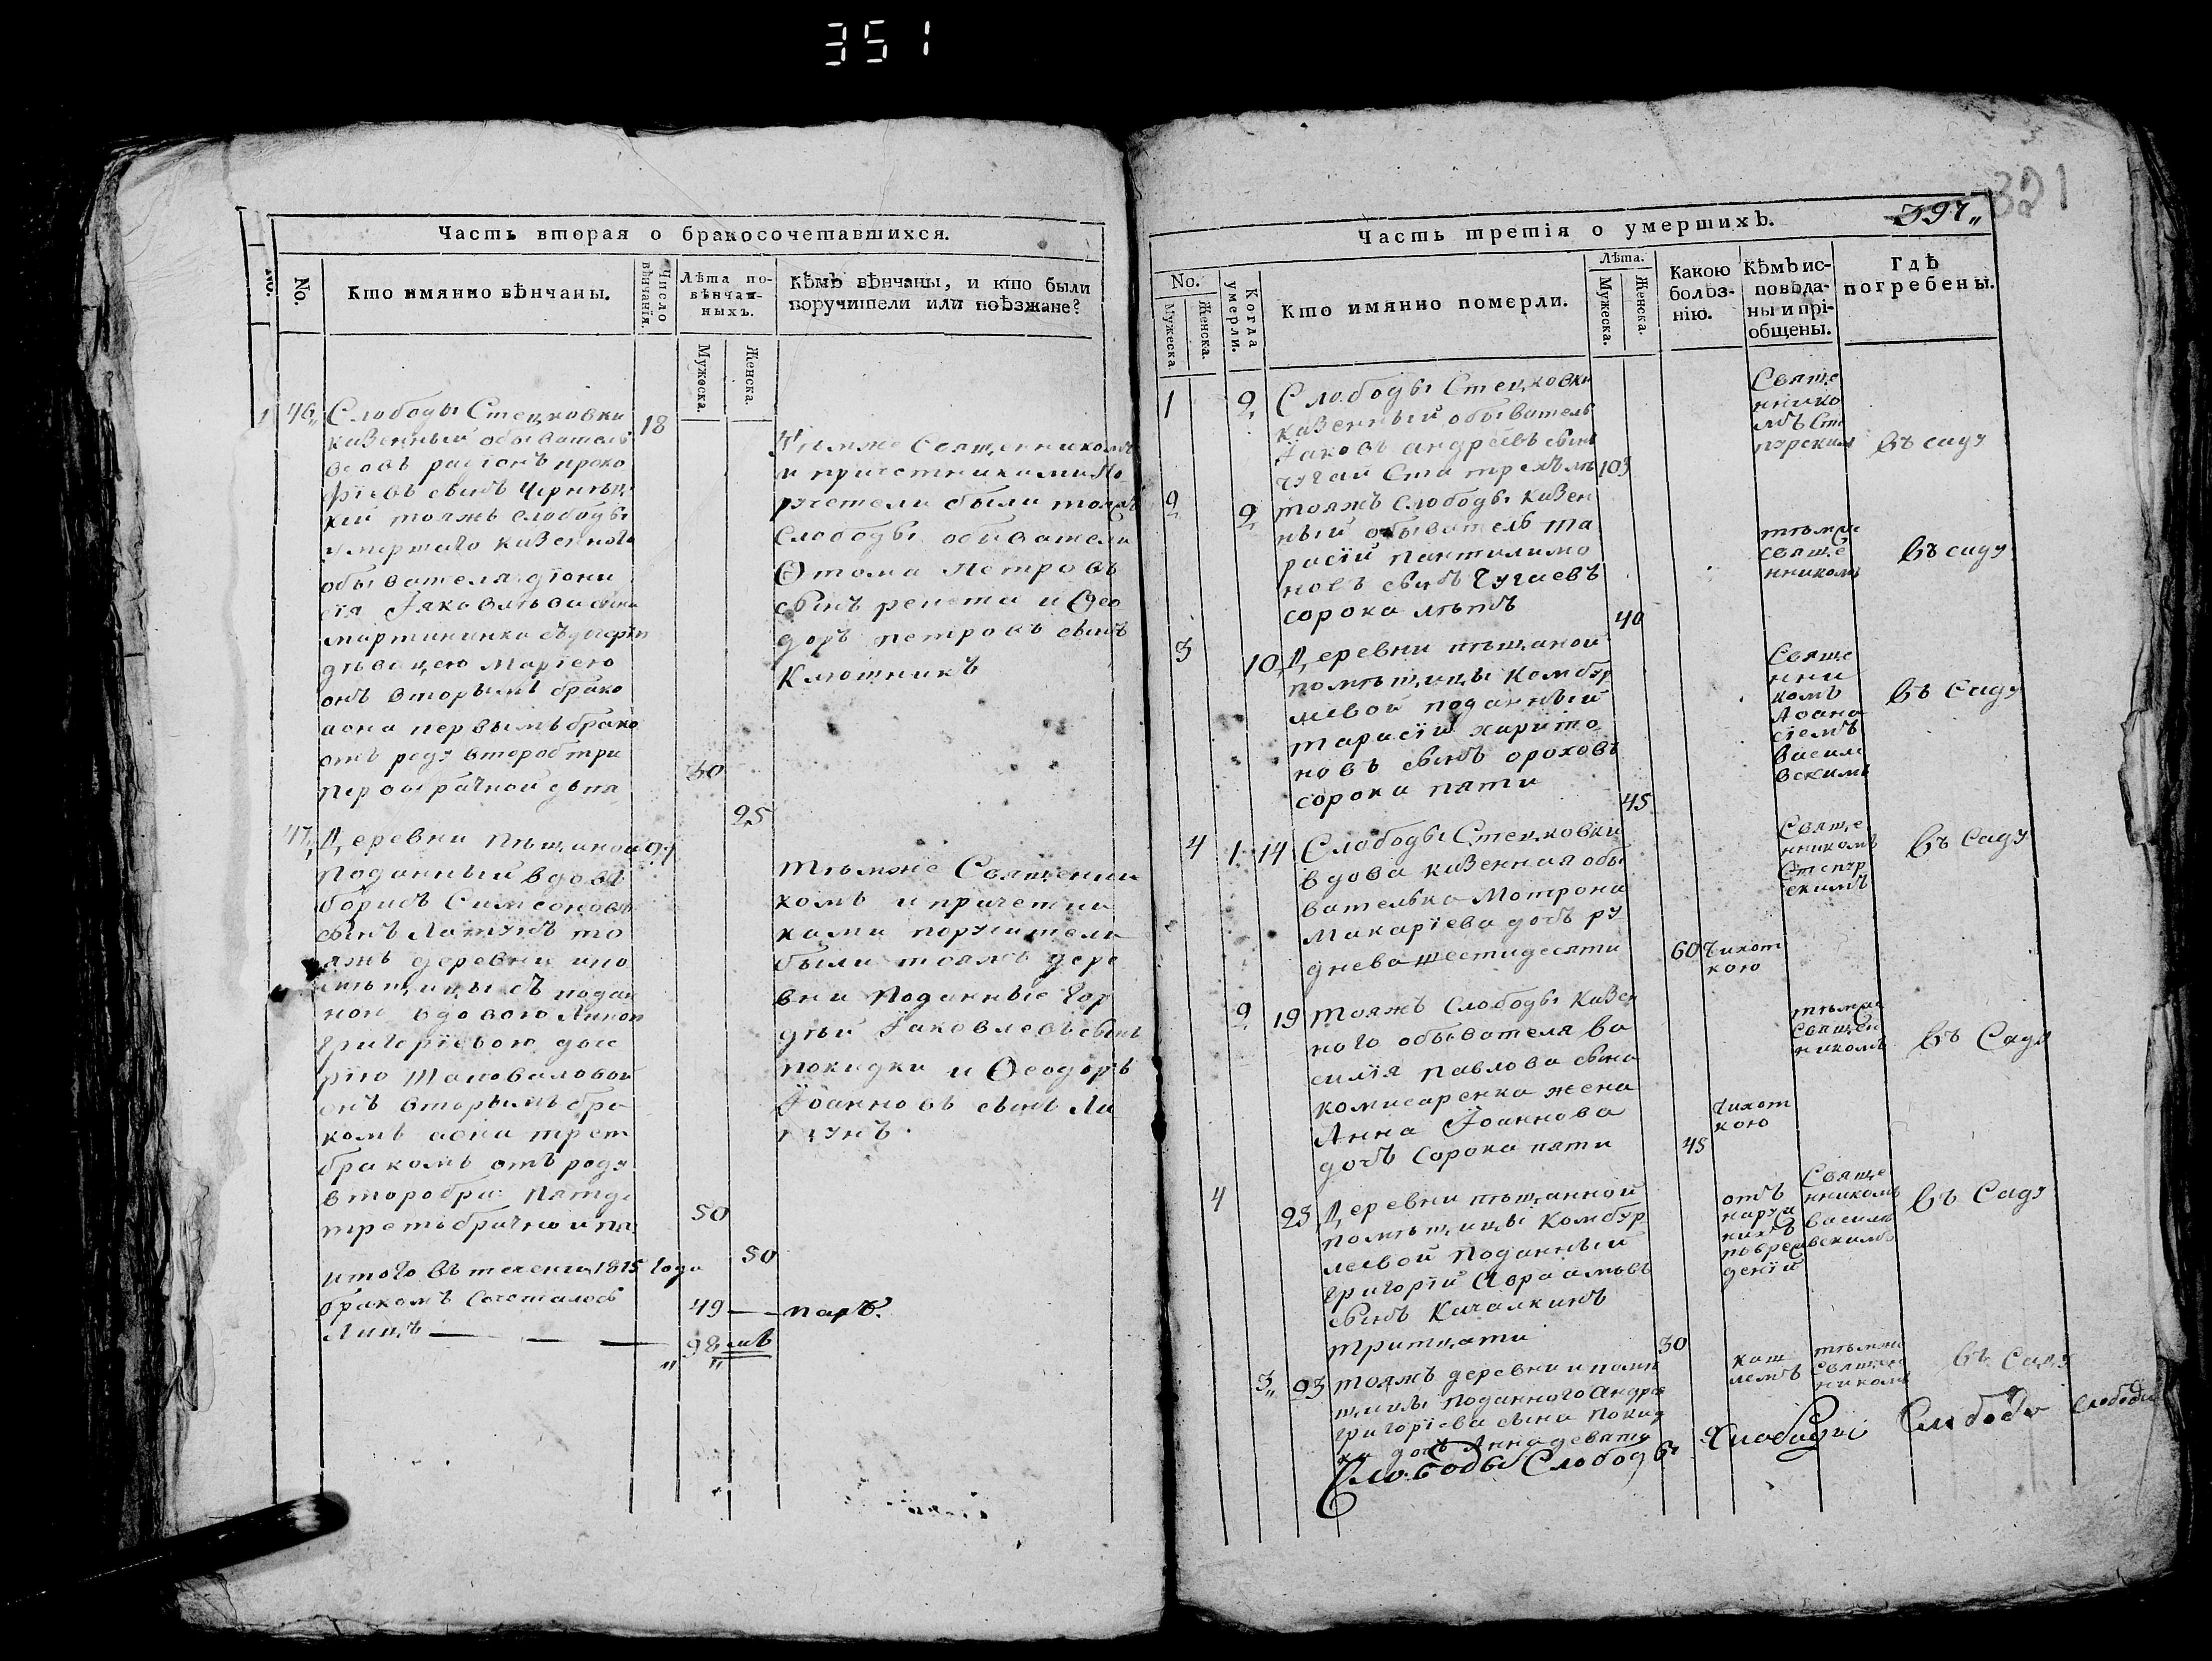 351
Часть вторая о бракосочетавшихся.
No.
Кто имянно вѣнчаны.
Число вѣнчанія.
Лѣта повѣнчанныхъ.
Мужеска.
Женска.
Кѣмъ вѣнчаны, и кто были
поручители или поѣзжане?
46
Слободы Стецковки
18
казенный обыватель
вдовъ радіонъ проко
фіевъ сынъ
кий тояжъ слободы
умершаго казенного
обывателя діони
сія Іаковлева сына
дѣвицею Маріею
онъ вторымъ брако
аона первымъ брако
отъ роду второб три
30
первобрачной два
25
Тѣмже Священникомъ
и причетниками По
ручтели были тояжъ
Слободы обиватели
Ѳтома Петровъ
сынъ репета и Ѳео
доръ петровъ сынъ
Клютникъ
47
Деревни Пѣщаной
Поданный вдовъ
борисъ Симеоновъ
сынъ Латунъ то
яжъ деревни ипо
мѣщицы съ подан
ной вдовою Анною
Григоріевою дще
рію Шаповаловой
онъ вторымъ бра
комъ аона трет
бракомъ отъ роду
второбра: Пятде
50
третьбрачно и пя
50
тѣмже Священни
комъ и причетни
ками поручители
были тояжъ дере
вни Поданные Гор
дѣй Іаковлевъ сынъ
покидка и Ѳеодоръ
Іоанновъ сынъ Ла
тунъ.
итого въ течени 1815 года
бракомъ Сочеталось
49 — паръ.
Лицъ — — — 98
Часть третія о умершихъ.
397
321
No.
Мужеска.
Женска.
Когда умерли.
Кто имянно померли.
Лѣта.
Мужеска.
Женска.
Какою болѣзнію.
Кѣмъ исповѣданы и пріобщены.
Гдѣ погребены.
1
2
Слободы Стецковки
казенный обыватель
Іаковъ андреевъ сынъ
чугай Ста трехъ лѣ
103
Свяще
нніко
мъ Сте
пурскимъ
въ саду
2
2
тояжъ Слободы казен
ный обыватель та
расій пантилимо
новъ сынъ Чугаевъ
сорока лѣтъ
40
тѣмже
свяще
нникомъ
въ саду
3
10
Деревни пѣщаной
помѣщицы Комбур
леевой поданный
тарасій харито
новъ сынъ ороховъ
сорока пяти
45
Свяще
нни
комъ
Аѳана
сіемъ
васил
вскимъ
въ саду
4
1
14
Слободы Стецковки
вдова казенная обы
вателька Мотрона
Макаріева дочь ру
днева шестидесяти
60
Чихот
кою
Свяще
нникомъ
Степур
скимъ
въ саду
2
19
тояжъ Слободы Казен
ного обывателя ва
силія Павлова сына
комисаренка жена
Анна Іоаннова
дочь Сорока пяти
45
чихот
кою
тѣмже
Священ
никомъ
въ Саду
4
23
Деревни пѣщанной
помѣщицы Комбур
леевой Поданный
Григорій Авраамовъ
сынъ Качалкинъ
тритцати
30
отъ
наруж
нихъ
повреж
деній
Свяще
нникомъ
василе
вскимъ
въ Саду
3
23
тояжъ деревни и помѣ
щицы поданного Андрея
григоріева сына покид
ки дочь Анна девяти
каш
лемъ
тѣмже
Священ
никомъ
въ Саду
Слободы Слободы Слободы Слободы Слободы